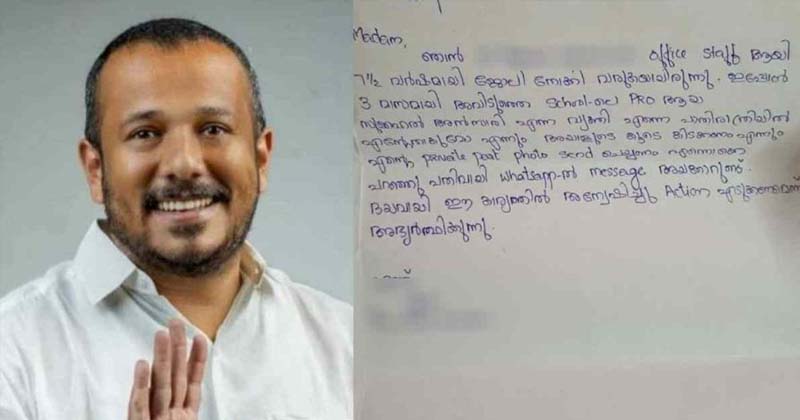 Madam,
ഞാൻ office staff ആയി
7½ വർഷമായി ജോലി നോക്കി വരുകയായിരുന്നു. ഇപ്പോൾ
3 മാസമായി അവിടുത്തെ School-ലെ PRO ആയ
അൻസാരി എന്ന വ്യക്തി എന്നെ പാതിരാത്രിയിൽ
എന്നും അയാളുടെ കൂടെ കിടക്കണം എന്നും
എന്റെ private part photo send ചെയ്യണം എന്നൊക്കെ
പറഞ്ഞു പതിവായി Whatsapp-ൽ message അയക്കാറുണ്ട്.
ദയവായി ഈ കാര്യത്തിൽ അന്വേഷിച്ചു Action എടുക്കണമെന്ന്
അഭ്യർത്ഥിക്കുന്നു.